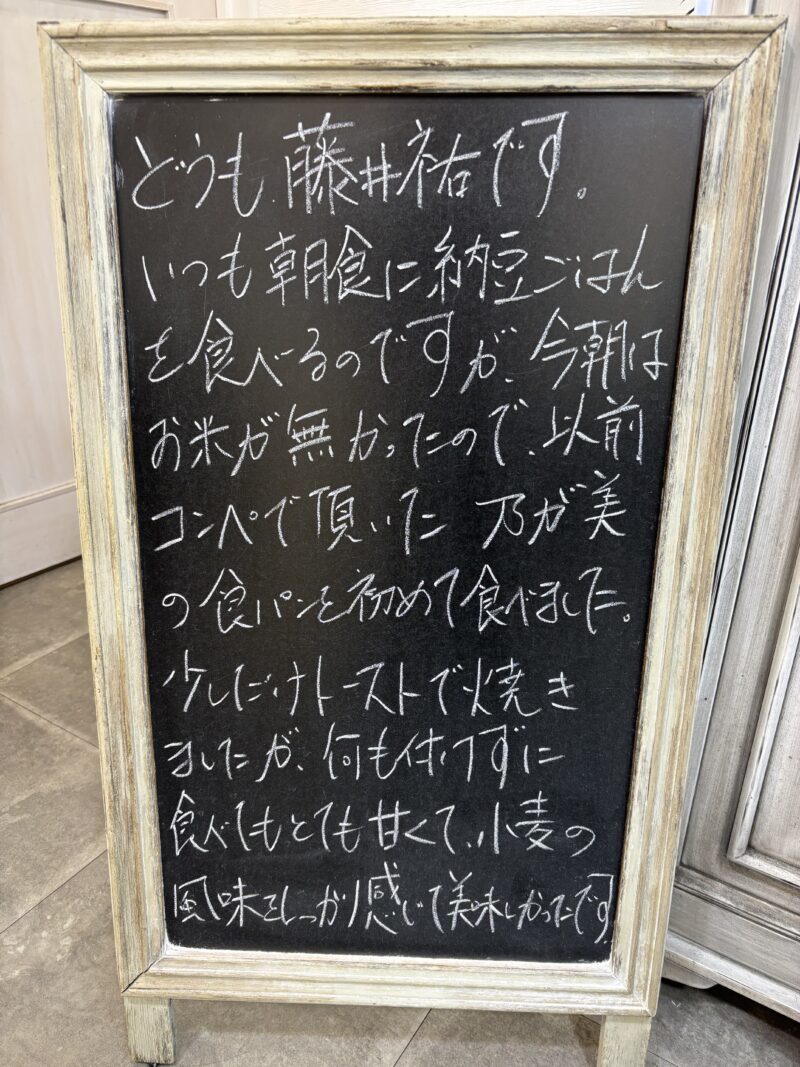 どうも、藤井祐です。
いつも朝食に納豆ごはん
を食べるのですが、今朝は
お米が無かったので、以前
コンペで頂いた 乃が美
の食パンを初めて食べました。
少しだけトーストで焼き
ましたが、何も付けずに
食べてもとても甘くて、小麦の
風味をしっかり感じて美味しかったです